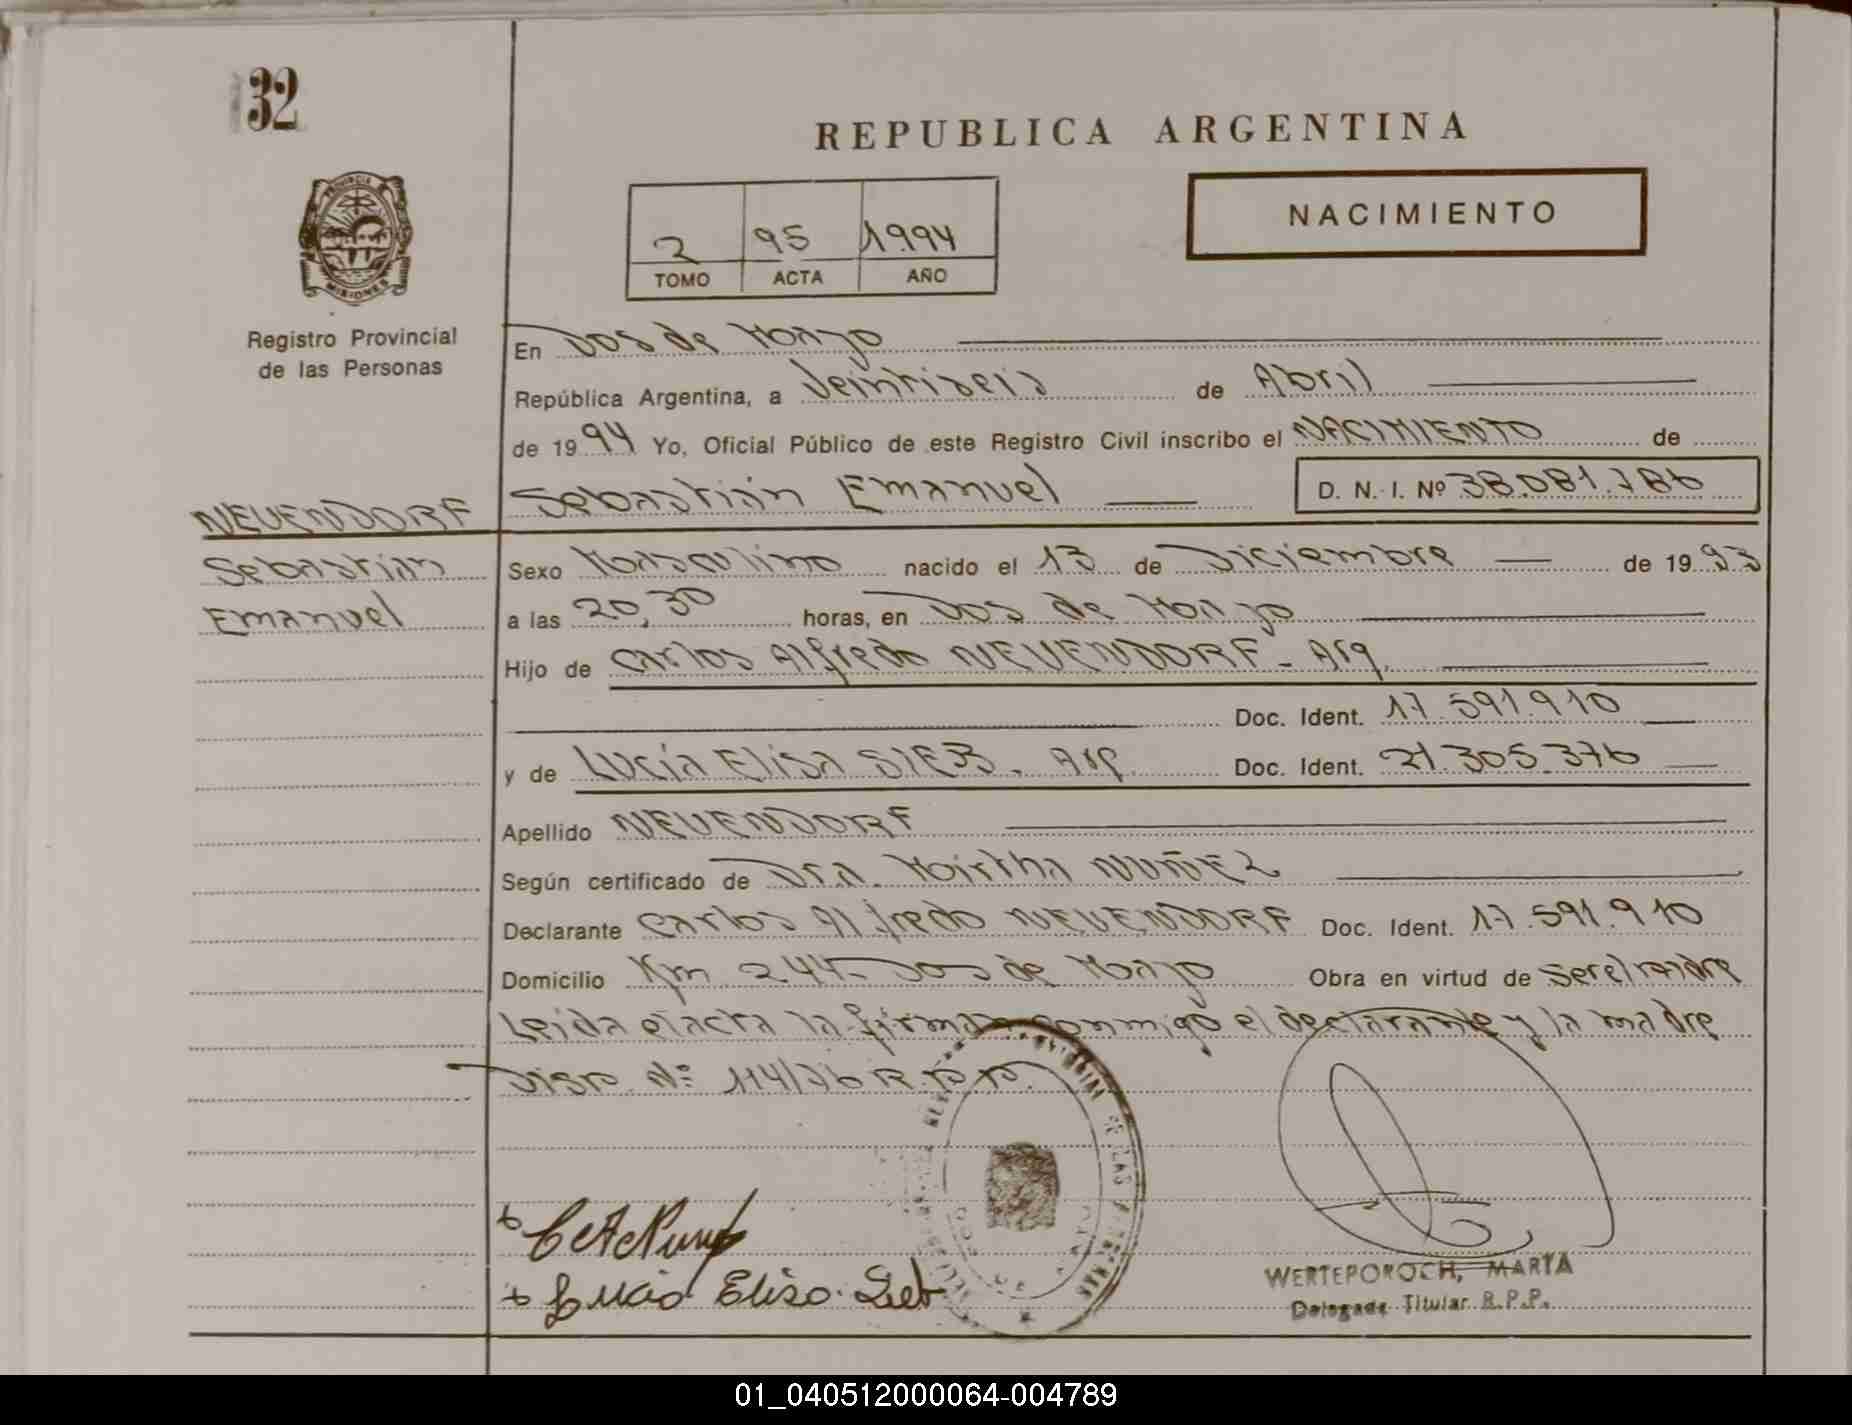 32
REPUBLICA ARGENTINA
NACIMIENTO
2 95 1994
TOMO ACTA AÑO
PROVINCIA DE
MISIONES
Registro Provincial
de las Personas
En Dos de Mayo
República Argentina, a Veintiseis de Abril
de 1994 Yo, Oficial Público de este Registro Civil inscribo el NACIMIENTO de
NEUENDORF Sebastián Emanuel D. N. I. Nº 38.081.786
Sebastián
Emanuel
Sexo Masculino nacido el 13 de Diciembre de 1993
a las 20,30 horas, en Dos de Mayo
Hijo de Carlos Alfredo NEUENDORF - Arg.
Doc. Ident. 17.591.910
y de Lucía Elisa SIEB - Arg. Doc. Ident. 21.305.376
Apellido NEUENDORF
Según certificado de Dra. Mirtha NUÑEZ
Declarante Carlos Alfredo NEUENDORF Doc. Ident. 17.591.910
Domicilio Km 244 - Dos de Mayo Obra en virtud de ser el padre
Leída el acta la firman conmigo el declarante y la madre
Disp. Nº 114/76 R.P.P.
Lucia Elisa Sieb
WERTEPOROCH, MARTA
Delegada Titular R.P.P.
01_040512000064-004789